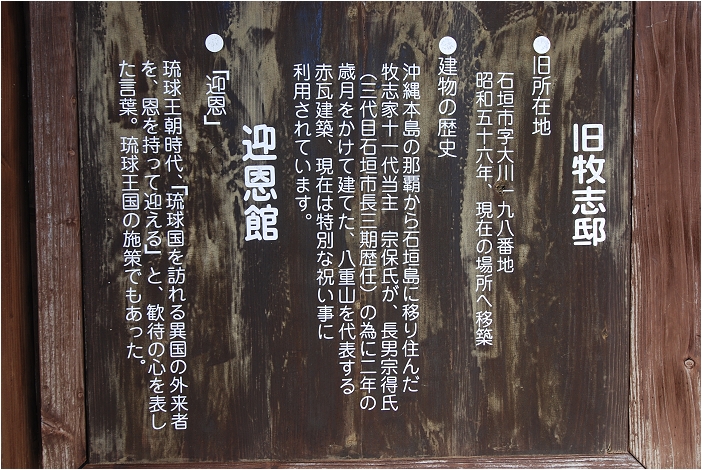 旧牧志邸
●旧所在地
石垣市字大川一九八番地
昭和五十六年、現在の場所へ移築
●建物の歴史
沖縄本島の那覇から石垣島に移り住んだ
牧志家十一代当主　宗保氏が、長男宗得氏
（三代目石垣市長三期歴任）の為に二年の
歳月をかけて建てた、八重山を代表する
赤瓦建築、現在は特別な祝い事に
利用されています。
迎恩館
●「迎恩」
琉球王朝時代、「琉球国を訪れる異国の外来者
を、恩を持って迎える」と、歓待の心を表し
た言葉。琉球王国の施策でもあった。